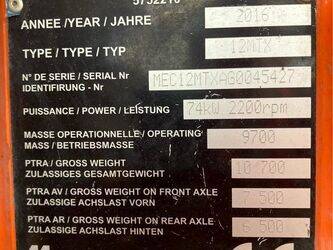 5752210
ANNEE /YEAR / JAHRE 2016
TYPE / TYPE / TYP 12MTX
N° DE SERIE / SERIAL Nr MEC12MTXAG0045427
IDENTIFIRUNG - Nr
PUISSANCE / POWER / LEISTUNG 74kW 2200rpm
MASSE OPERATIONNELLE / OPERATING 9700
MASS / BETRIEBSMASSE
PTRA / GROSS WEIGHT 10 700
ZULASSIGES GESAMTGEWICHT
PTRA AV / GROSS WEIGHT ON FRONT AXLE 7 500
ZULASSIGES ACHSLAST VORN
PTRA AR / GROSS WEIGHT ON REAR AXLE 6 500
ZULASSIGES ACHSLAST HINTEN